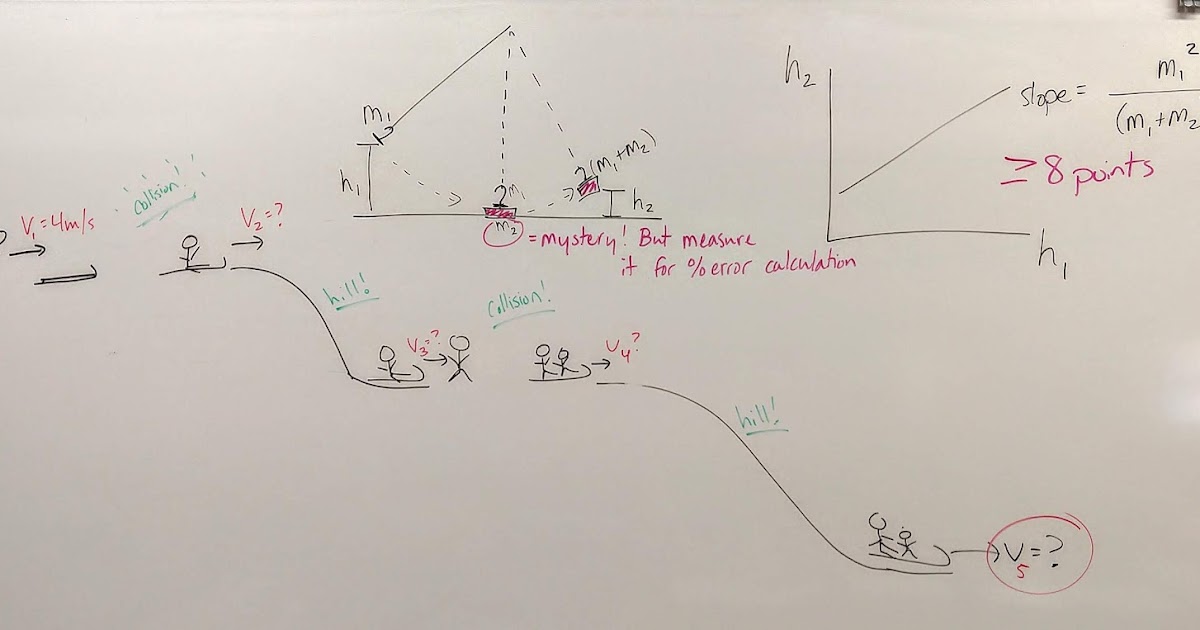 m₁
h₁
2 m₁
m₂
2(m₁+m₂)
h₂
= mystery! But measure
it for % error calculation
h₂
h₁
slope = m₁²
(m₁+m₂
≥ 8 points
V₁=4m/s
Collision!
V₂=?
hill!
V₃=?
Collision!
V₄?
hill!
V₅=?